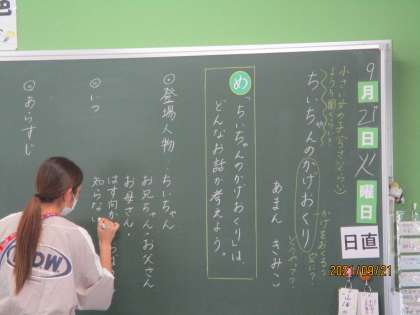 9月21日火曜日
日直
小さい女の子
ちいちゃんのかげおくり
あまん きみこ
め
「ちいちゃんのかげおくり」は、
どんなお話か考えよう。
◎登場人物
ちいちゃん
お兄ちゃん・お父さん
お母さん・
はす向か
知らない
◎いつ
◎あらすじ
2021/09/21